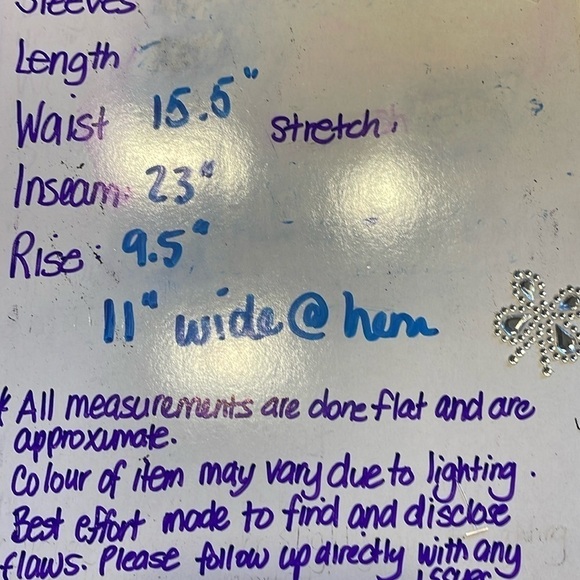 Sleeves
Length
Waist 15.5" stretch.
Inseam: 23"
Rise: 9.5"
11" wide @ hem
* All measurements are done flat and are
approximate.
Colour of item may vary due to lighting.
Best effort made to find and disclose
flaws. Please follow up directly with any
issues